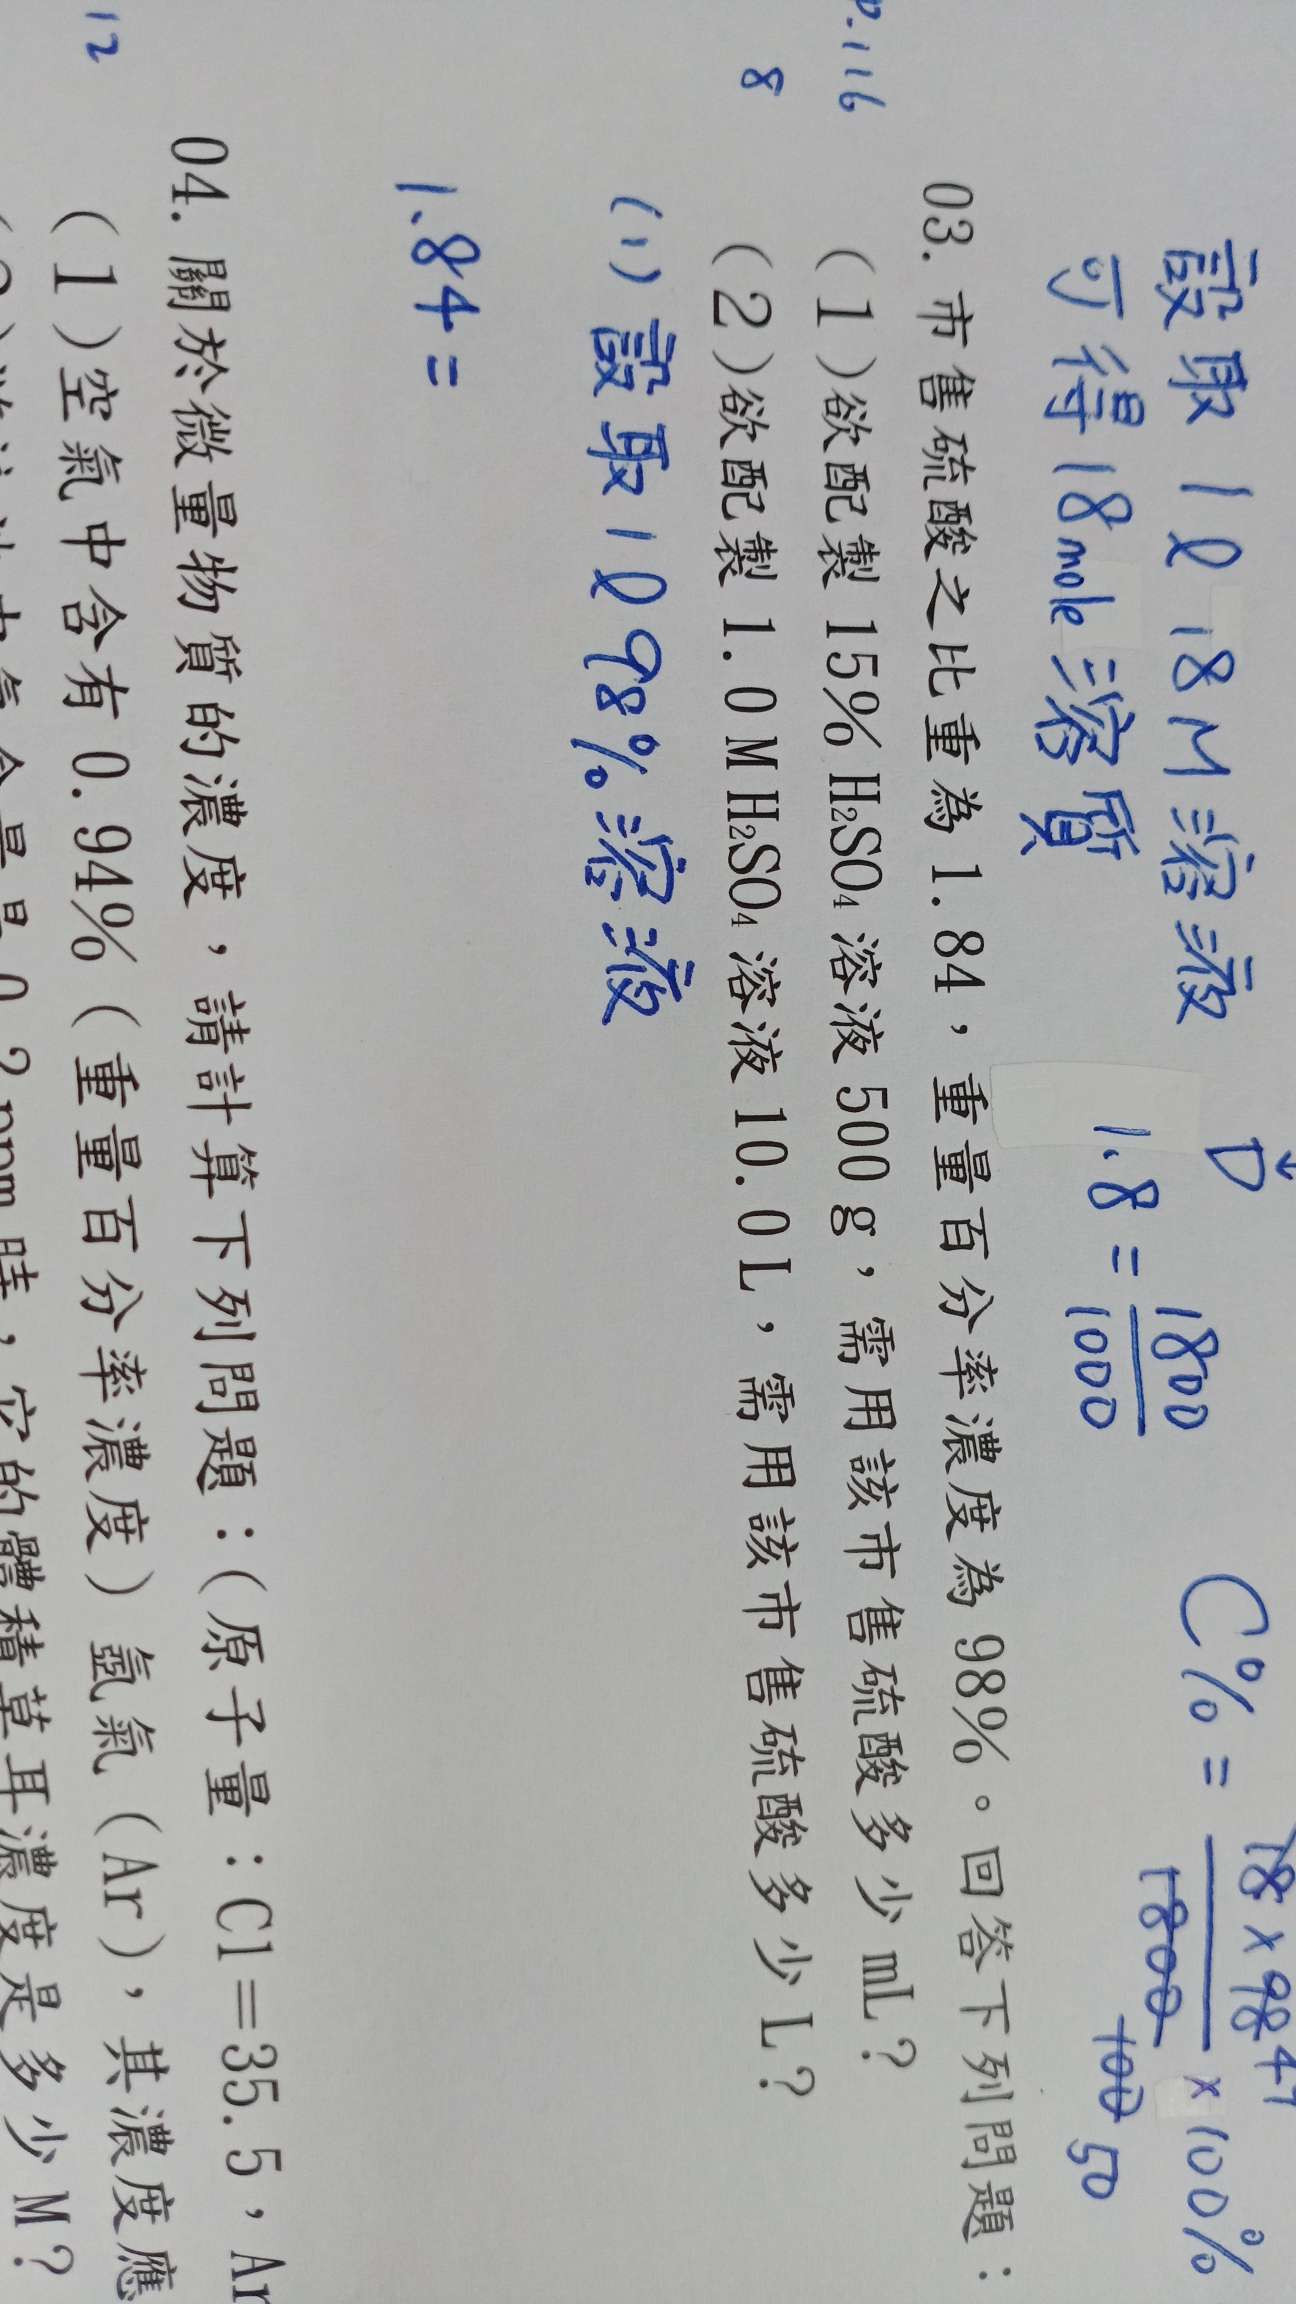 設取 1ℓ 18M 溶液 D
可得 18mole 溶質 1.8 = 1800/1000 C% = 18×98/1800 ×100%
49
100 50
03. 市售硫酸之比重為 1.84，重量百分率濃度為 98%。回答下列問題：
P.116 (1)欲配製 15% H₂SO₄ 溶液 500 g，需用該市售硫酸多少 mL？
8 (2)欲配製 1.0 M H₂SO₄ 溶液 10.0 L，需用該市售硫酸多少 L？
(1) 設取 1ℓ 98% 溶液
1.84 =
04. 關於微量物質的濃度，請計算下列問題：(原子量：Cl＝35.5，Ar
12 (1)空氣中含有 0.94%（重量百分率濃度）氬氣（Ar），其濃度應
ppm 時，它的體積莫耳濃度是多少 M？